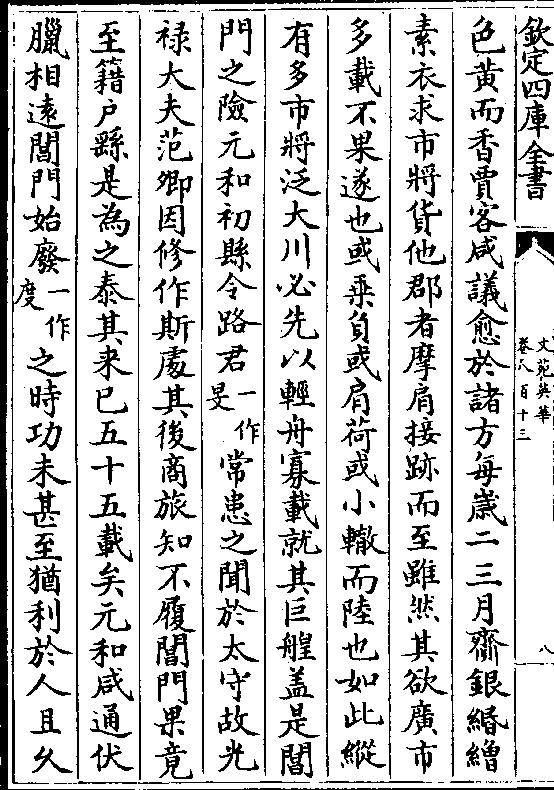 欽定四庫全書
文苑英華
卷八百十三
八
色黄而香賈客咸議愈於諸方每歲二三月齎銀緡繒
素衣求市將貨他郡者摩肩接跡而至雖然其欲廣市
多載不果遂也或乗負或肩荷或小轍而陸也如此縱
有多市將泛大川必先以輕舟寡載就其巨艎盖是閶
門之險元和初縣令路君一作旻常患之聞於太守故光
禄大夫范卿因修作斯處其後商旅知不履閶門果竟
至籍户繇是為之泰其来已五十五載矣元和咸通伏
臘相逺閶門始廢一作度之時功未甚至猶利於人且久